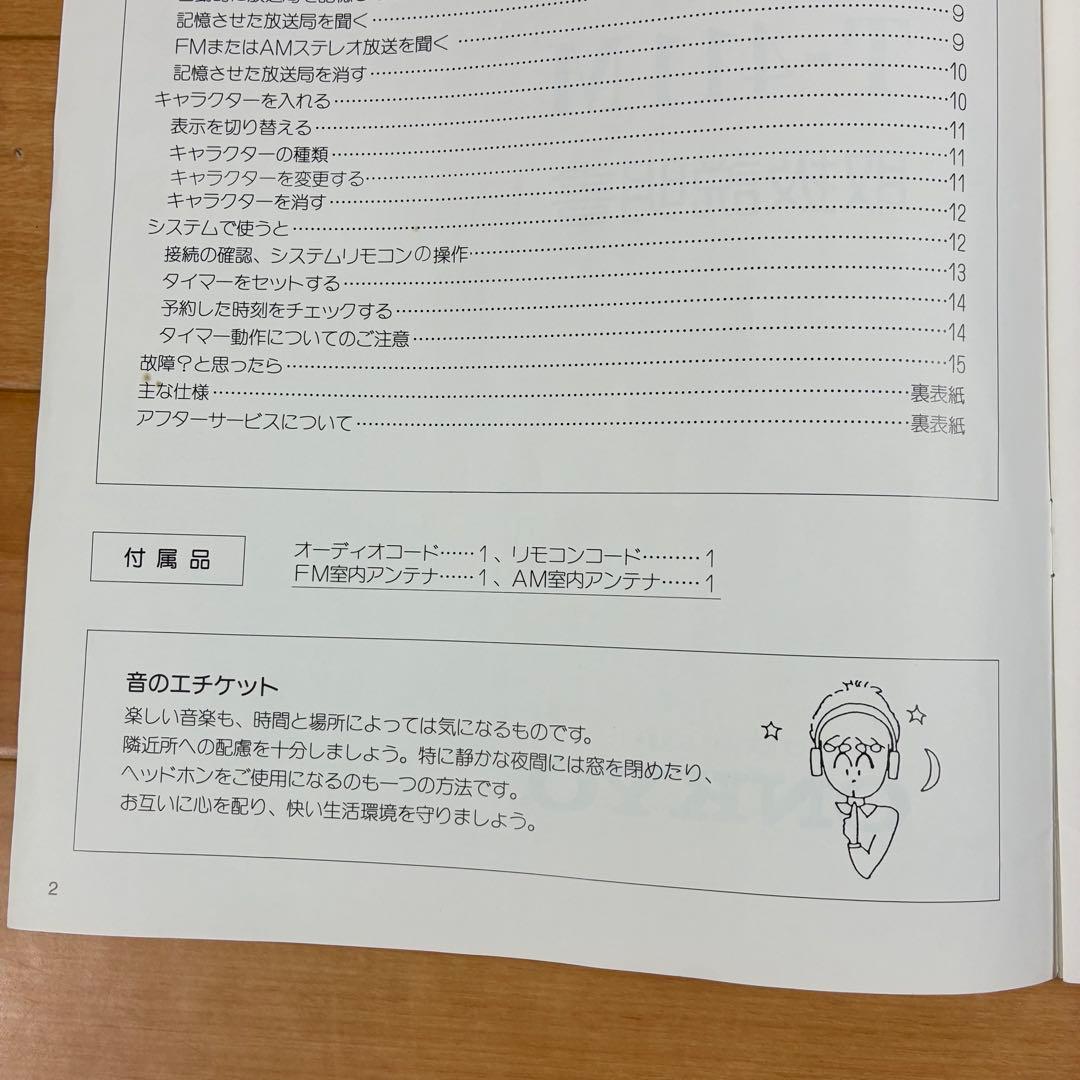 記憶させた放送局を聞く……9
FMまたはAMステレオ放送を聞く……9
記憶させた放送局を消す……10
キャラクターを入れる……10
表示を切り替える……11
キャラクターの種類……11
キャラクターを変更する……11
キャラクターを消す……12
システムで使うと……12
接続の確認、システムリモコンの操作……13
タイマーをセットする……14
予約した時刻をチェックする……14
タイマー動作についてのご注意……15
故障?と思ったら……
主な仕様……裏表紙
アフターサービスについて……裏表紙
付属品
オーディオコード……1、リモコンコード………1
FM室内アンテナ……1、AM室内アンテナ……1
音のエチケット
楽しい音楽も、時間と場所によっては気になるものです。
隣近所への配慮を十分しましょう。特に静かな夜間には窓を閉めたり、
ヘッドホンをご使用になるのも一つの方法です。
お互いに心を配り、快い生活環境を守りましょう。
2